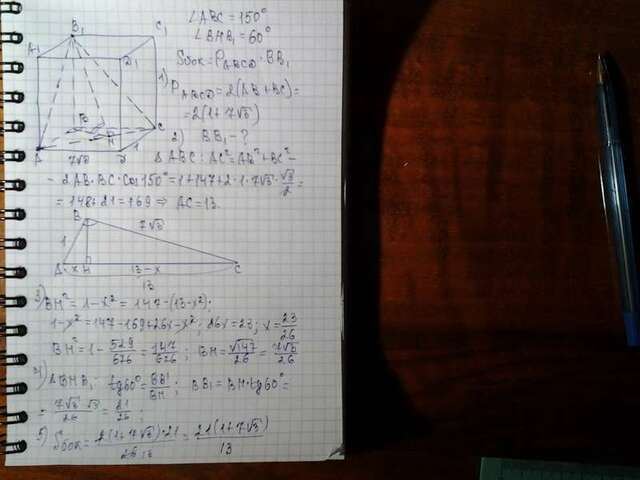 B₁
C₁
A₁
D₁
B
C
H
A
7√3
D
1
∠ABC = 150°
∠BHB₁ = 60°
Sбок = P_ABCD · BB₁
1) P_ABCD = 2(AB + BC) =
= 2(1 + 7√3)
2) BB₁ - ?
Δ ABC: AC² = AB² + BC² -
- 2AB·BC·Cos150° = 1 + 147 + 2·1·7√3·√3/2 =
= 148 + 21 = 169 ⇒ AC = 13.
B
7√3
1
A x H 13-x C
13
3) BH² = 1 - x² = 147 - (13-x²);
1 - x² = 147 - 169 + 26x - x²; 26x = 23; x = 23/26
BH² = 1 - 529/676 = 147/676; BH = √147/26 = 7√3/26
4) ΔBHB₁: tg60° = BB₁/BH; BB₁ = BH·tg60° =
= 7√3·√3/26 = 21/26;
5) Sбок = 2(1+7√3)·21/26 13 = 21(1+7√3)/13